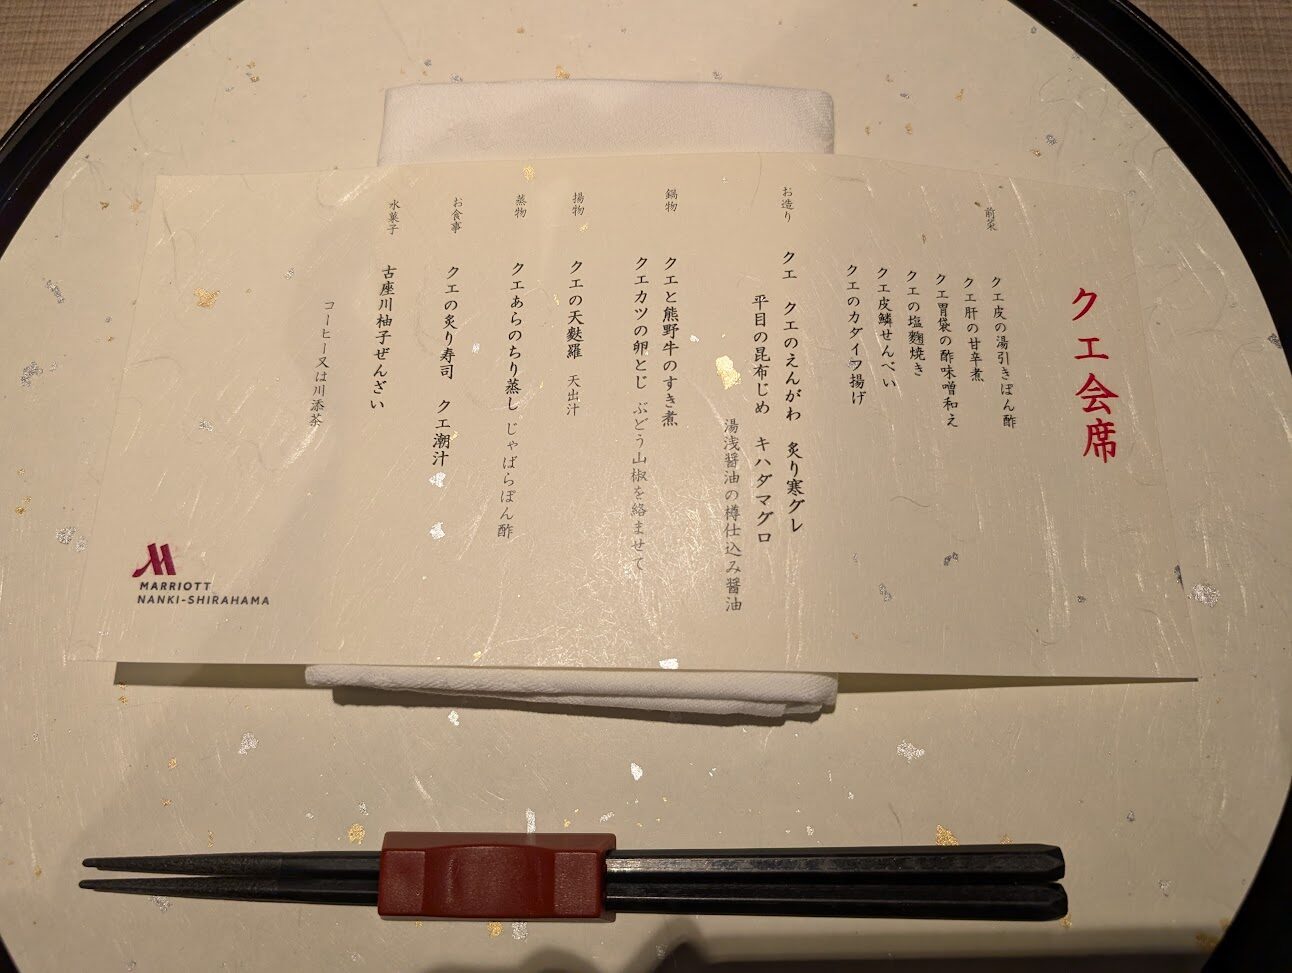 クエ会席
前菜
クエ皮の湯引きぽん酢
クエ肝の甘辛煮
クエ胃袋の酢味噌和え
クエの塩麴焼き
クエ皮鱗せんべい
クエのカダイフ揚げ
お造り
クエ クエのえんがわ 炙り寒グレ
平目の昆布じめ キハダマグロ
湯浅醤油の樽仕込み醤油
鍋物
クエと熊野牛のすき煮
クエカツの卵とじ ぶどう山椒を絡ませて
揚物
クエの天麩羅 天出汁
蒸物
クエあらのちり蒸し じゃばらぽん酢
お食事
クエの炙り寿司 クエ潮汁
水菓子
古座川柚子ぜんざい
コーヒー又は川添茶
MARRIOTT
NANKI-SHIRAHAMA